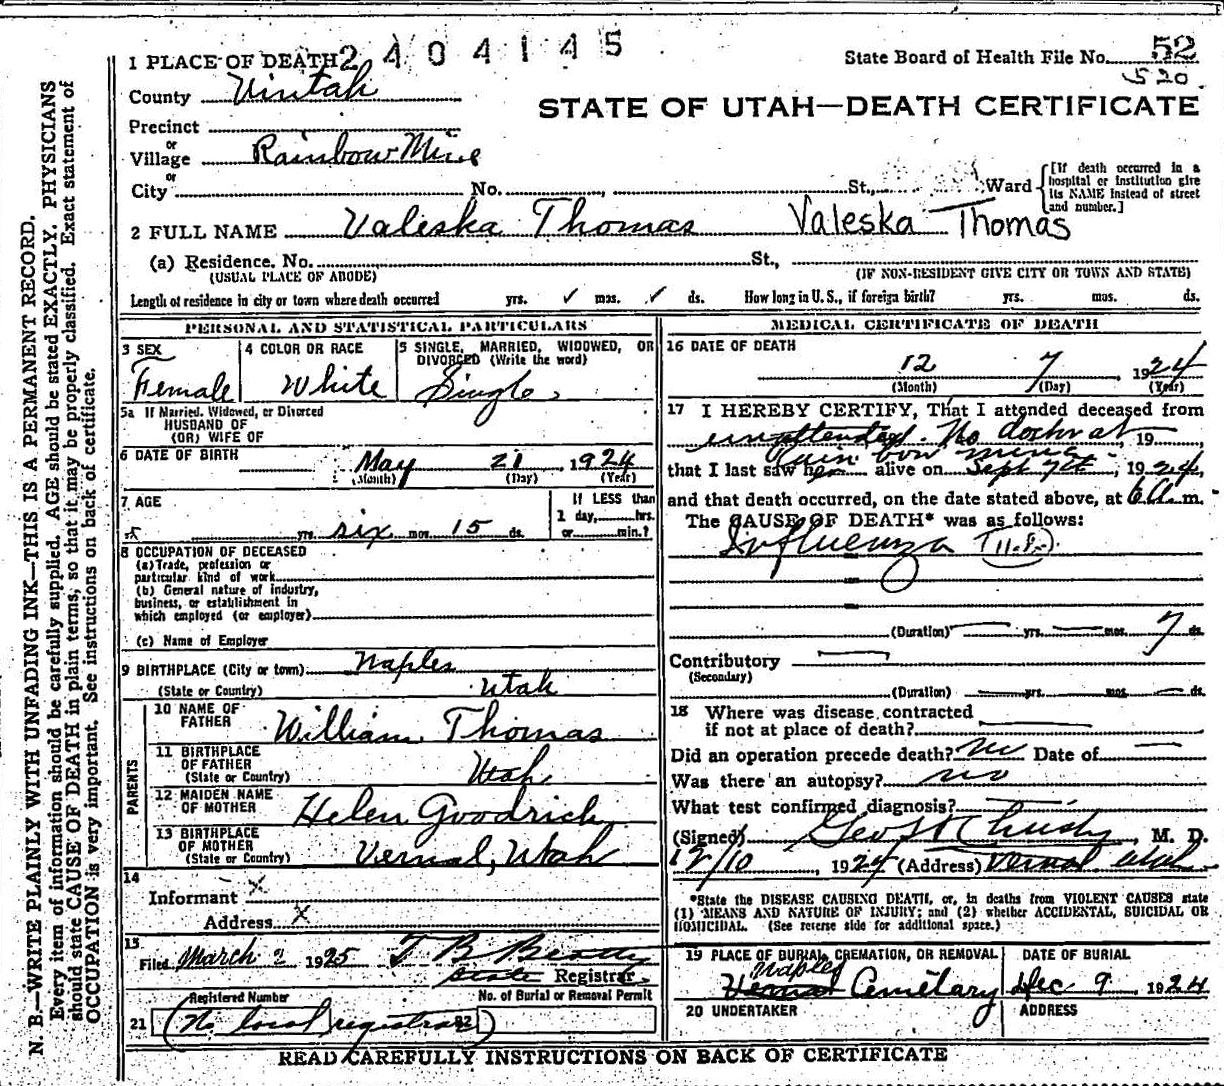 2 4 0 4 1 4 5
State Board of Health File No. 52
520
1 PLACE OF DEATH
County Uintah
STATE OF UTAH—DEATH CERTIFICATE
Precinct
or
Village Rainbow Mine
or
City No. , St., Ward
[If death occurred in a hospital or institution give its NAME instead of street and number.]
2 FULL NAME Valeska Thomas Valeska Thomas
(a) Residence. No. St.,
(USUAL PLACE OF ABODE) (IF NON-RESIDENT GIVE CITY OR TOWN AND STATE)
Length of residence in city or town where death occurred yrs. ✓ mos. ✓ ds. How long in U. S., if foreign birth? yrs. mos. ds.
PERSONAL AND STATISTICAL PARTICULARS
3 SEX
Female
4 COLOR OR RACE
White
5 SINGLE, MARRIED, WIDOWED, OR
DIVORCED (Write the word)
Single.
5a If Married, Widowed, or Divorced
HUSBAND OF
(OR) WIFE OF
6 DATE OF BIRTH May 21 1924
(Month) (Day) (Year)
7 AGE
yrs. six mos. 15 ds.
If LESS than
1 day, hrs.
or min.?
8 OCCUPATION OF DECEASED
(a) Trade, profession or
particular kind of work
(b) General nature of industry,
business, or establishment in
which employed (or employer)
(c) Name of Employer
9 BIRTHPLACE (City or town) Naples
(State or Country) Utah
PARENTS
10 NAME OF
FATHER William Thomas
11 BIRTHPLACE
OF FATHER
(State or Country) Utah
12 MAIDEN NAME
OF MOTHER Helen Goodrich
13 BIRTHPLACE
OF MOTHER
(State or Country) Vernal, Utah
14
Informant X
Address X
15
Filed March 2 1925 T B Beatty
State Registrar
Registered Number No. of Burial or Removal Permit
21 (No local registrar) 22
MEDICAL CERTIFICATE OF DEATH
16 DATE OF DEATH
12 7 1924
(Month) (Day) (Year)
17 I HEREBY CERTIFY, That I attended deceased from
unattended. No doctor at , 19
Rain bow mine
that I last saw her alive on Sept 7th, 1924,
and that death occurred, on the date stated above, at 6 A. m.
The CAUSE OF DEATH* was as follows:
Influenza
(Duration) yrs. mos. 7 ds.
Contributory
(Secondary)
(Duration) yrs. mos. ds.
18 Where was disease contracted
if not at place of death?
Did an operation precede death? no Date of
Was there an autopsy? no
What test confirmed diagnosis?
(Signed) , M. D.
12/10, 1924 (Address) Vernal Utah
*State the DISEASE CAUSING DEATH, or, in deaths from VIOLENT CAUSES state
(1) MEANS AND NATURE OF INJURY; and (2) whether ACCIDENTAL, SUICIDAL OR
HOMICIDAL. (See reverse side for additional space.)
19 PLACE OF BURIAL, CREMATION, OR REMOVAL
Naples
Vernal Cemetary
DATE OF BURIAL
Dec 9, 1924
20 UNDERTAKER
ADDRESS
READ CAREFULLY INSTRUCTIONS ON BACK OF CERTIFICATE
N. B.—WRITE PLAINLY WITH UNFADING INK—THIS IS A PERMANENT RECORD.
Every item of information should be carefully supplied. AGE should be stated EXACTLY. PHYSICIANS
should state CAUSE OF DEATH in plain terms, so that it may be properly classified. Exact statement of
OCCUPATION is very important. See instructions on back of certificate.